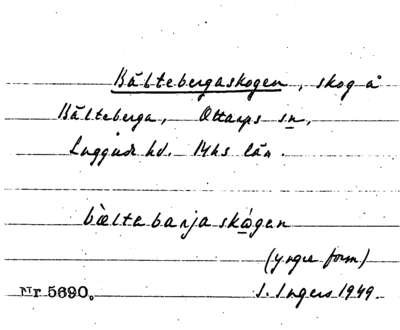 Bältebergaskogen, skog å
Bälteberga, Ottarps sn,
Luggude hd. Mhs län.
bæltabarjaskógen
(yngre form)
Nr 5690. I. Ingers 1949.